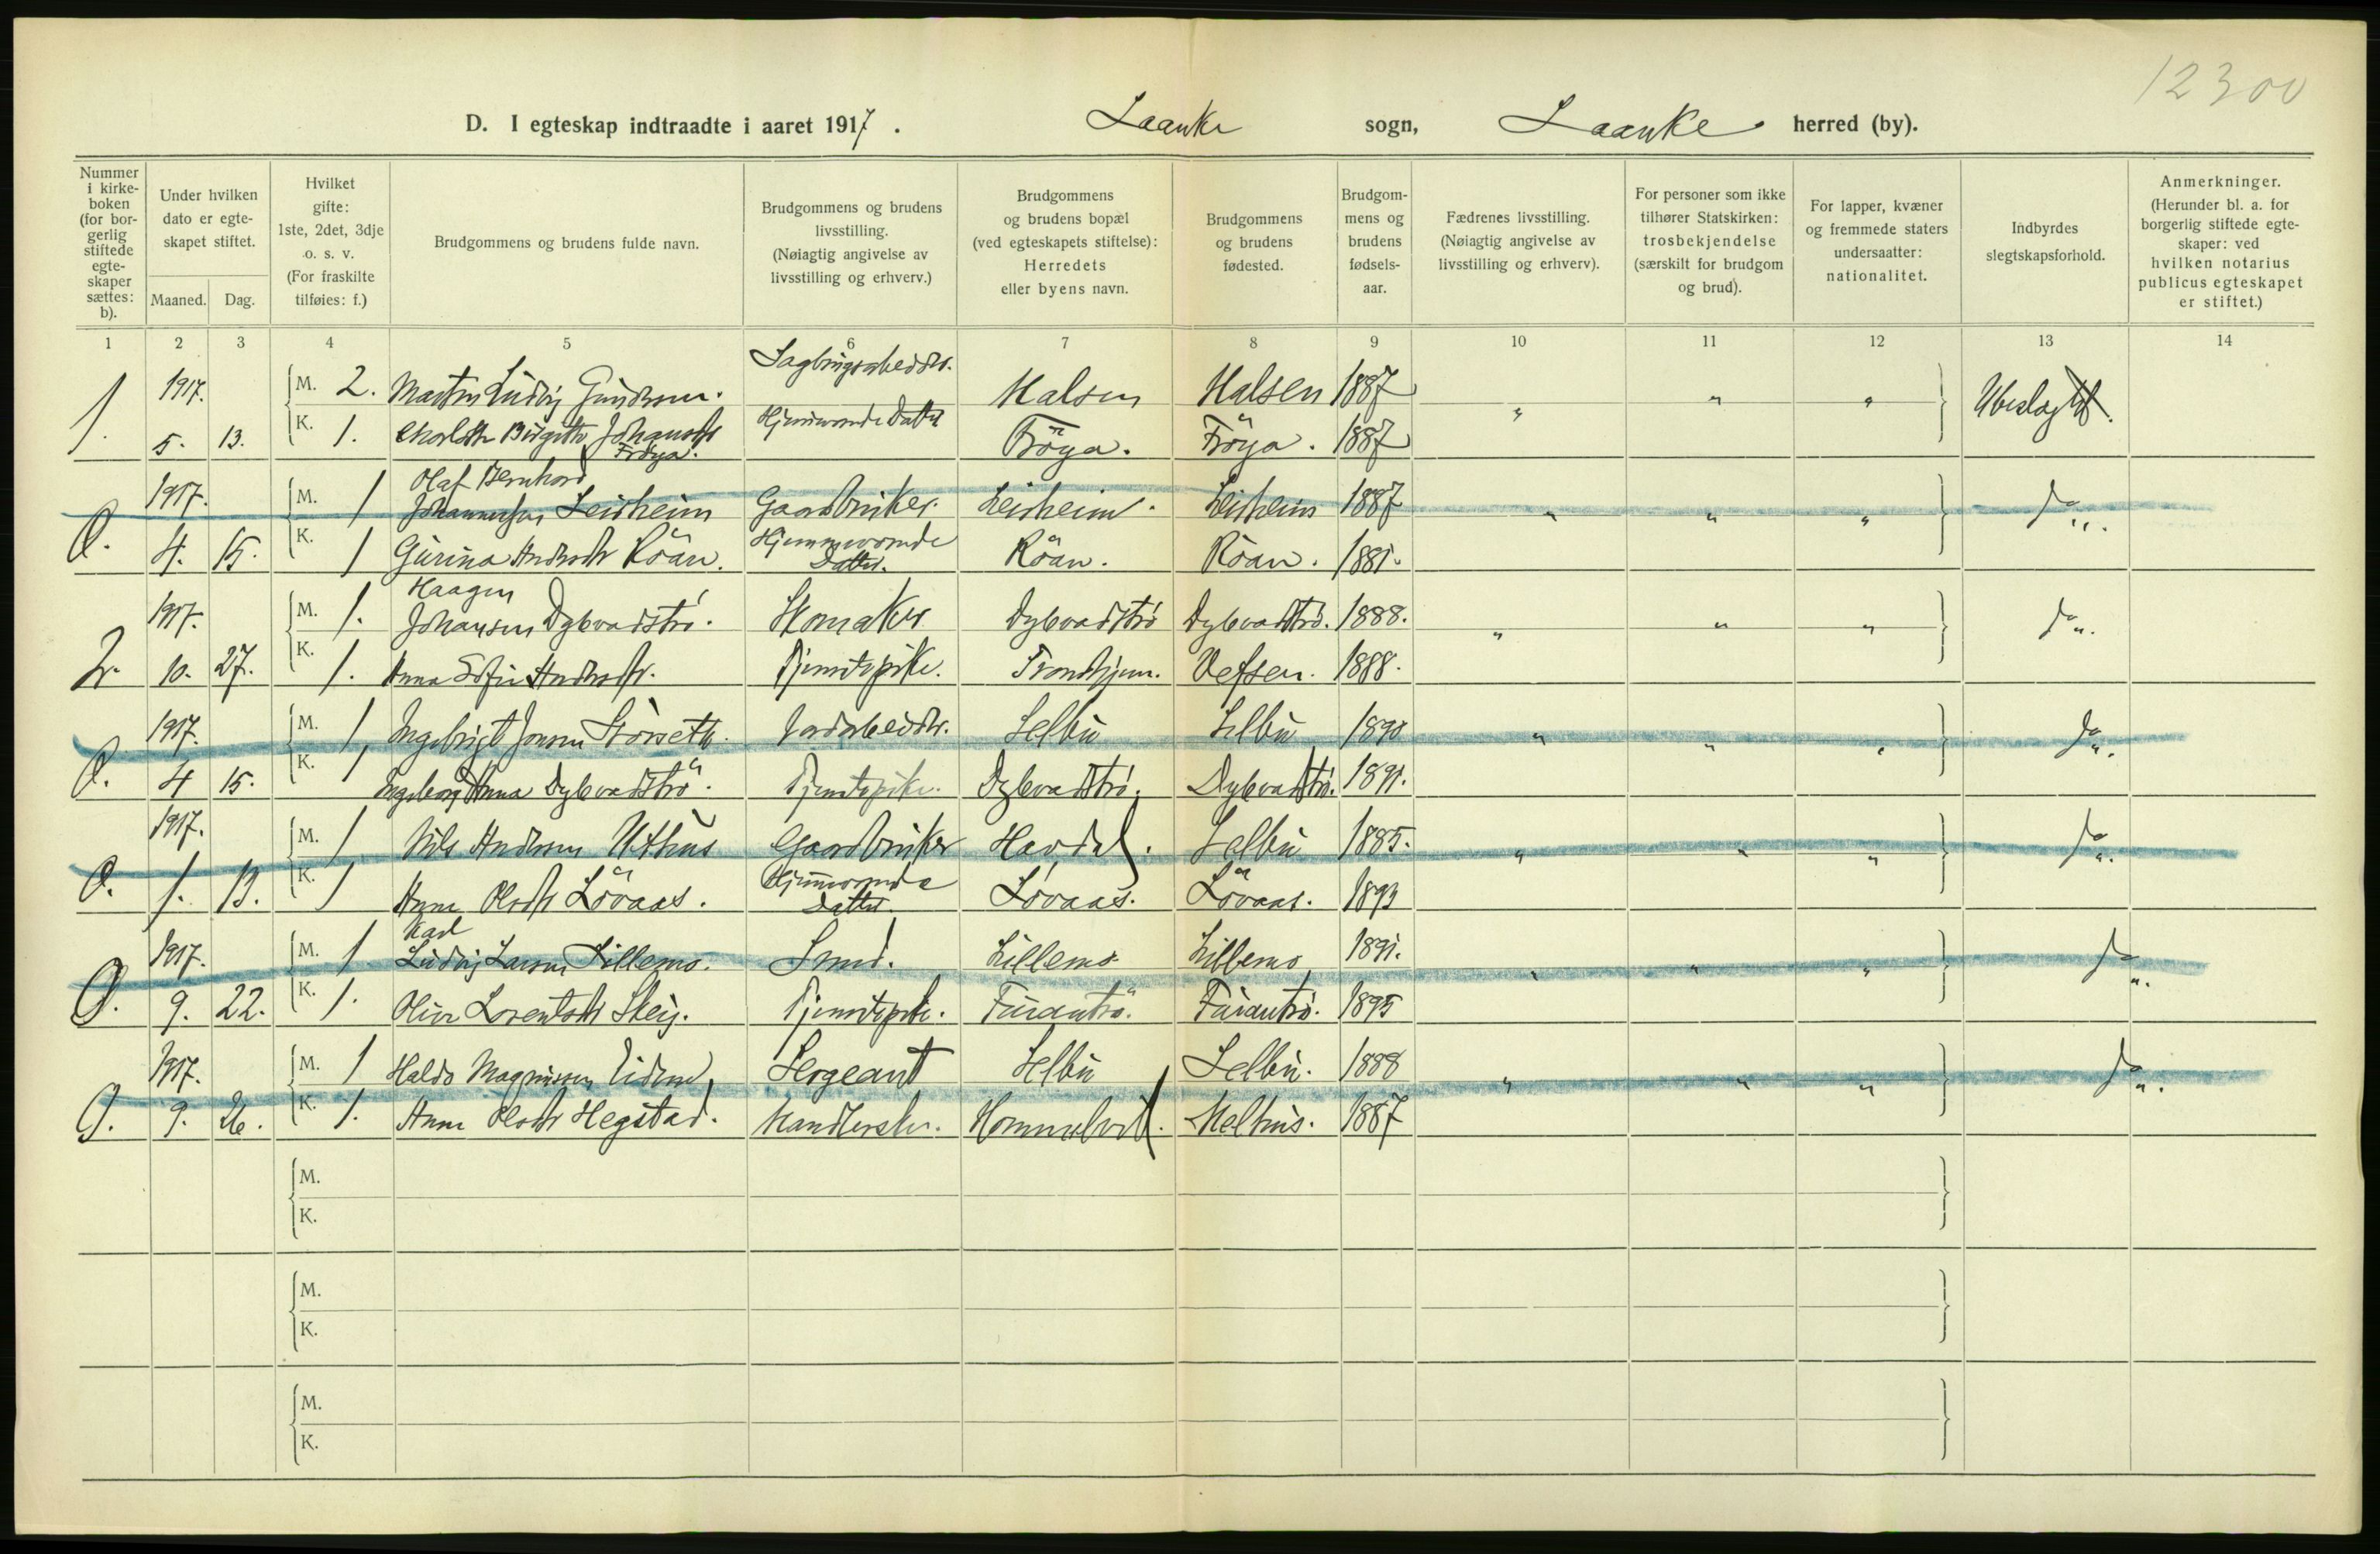 12300
D. I egteskap indtraadte i aaret 1917. Laanke sogn, Laanke herred (by).
Nummer i kirkeboken (for borgerlig stiftede egteskaper sættes: b).
Under hvilken dato er egteskapet stiftet.
Maaned. Dag.
Hvilket gifte: 1ste, 2det, 3dje o. s. v. (For fraskilte tilføies: f.)
Brudgommens og brudens fulde navn.
Brudgommens og brudens livsstilling. (Nøiagtig angivelse av livsstilling og erhverv.)
Brudgommens og brudens bopæl (ved egteskapets stiftelse): Herredets eller byens navn.
Brudgommens og brudens fødested.
Brudgommens og brudens fødselsaar.
Fædrenes livsstilling. (Nøiagtig angivelse av livsstilling og erhverv).
For personer som ikke tilhører Statskirken: trosbekjendelse (særskilt for brudgom og brud).
For lapper, kvæner og fremmede staters undersaatter: nationalitet.
Indbyrdes slegtskapsforhold.
Anmerkninger. (Herunder bl. a. for borgerlig stiftede egteskaper: ved hvilken notarius publicus egteskapet er stiftet.)
1 2 3 4 5 6 7 8 9 10 11 12 13 14
1917. M. 2. Martin Ludvig Gundersen. Sagbrugsarbeider. Halsen Halsen 1887 " " " Ubeslagtet.
1. 5. 13. K. 1. Birgitte Johansdtr Frøya. Hjemmeværende Datter Frøya. Frøya. 1887
1917. M. 1 Olaf Bernhard Johannessen Leirheim Gaardbruker. Leirheim. Leirheim 1887 " " " Do
O. 4. 15. K. 1 Gurina Andersdtr Röan. Hjemmeværende Datter. Röan. Röan. 1881.
1917. M. 1. Haagen Johansen Dybvadstrø. Skomaker Dybvadstrø Dybvadstrø. 1888. " " " Do
2. 10. 27. K. 1. Anna Sofie Andersdtr. Tjenestepike. Trondhjem. Vefsen. 1888.
1917. M. 1 Ingebrigt Jonsen Jordarbeider. Selbu Selbu 1890 " " " Do
O. 4 15. K. 1 Ingeborg Anna Dybvadstrø. Tjenestepike. Dybvadstrø. Dybvadstrø. 1891.
1917. M. 1 Nils Andersen Uthus Gaardbruker Havdal. Selbu 1885. " " " Do
O. 1. 13. K. 1 Anne Olsdtr Lövaas. Hjemmeværende Datter. Lövaas. Lövaas. 1893
1917. M. 1 Karl Ludvig Larsen Lillemo. Smed. Lillemo Lillemo 1891. " " " Do
O. 9. 22. K. 1. Lorentsdtr Steig. Tjenestepike. Furuntrø. Furuntrø. 1895
1917. M. 1 Haldo Magnussen Sergeant Selbu Selbu. 1888 " " " Do
O. 9. 26. K. 1. Anne Olsdtr Hegstad. Handlerske. Hommelvik. Melhus. 1887
M.
K.
M.
K.
M.
K.